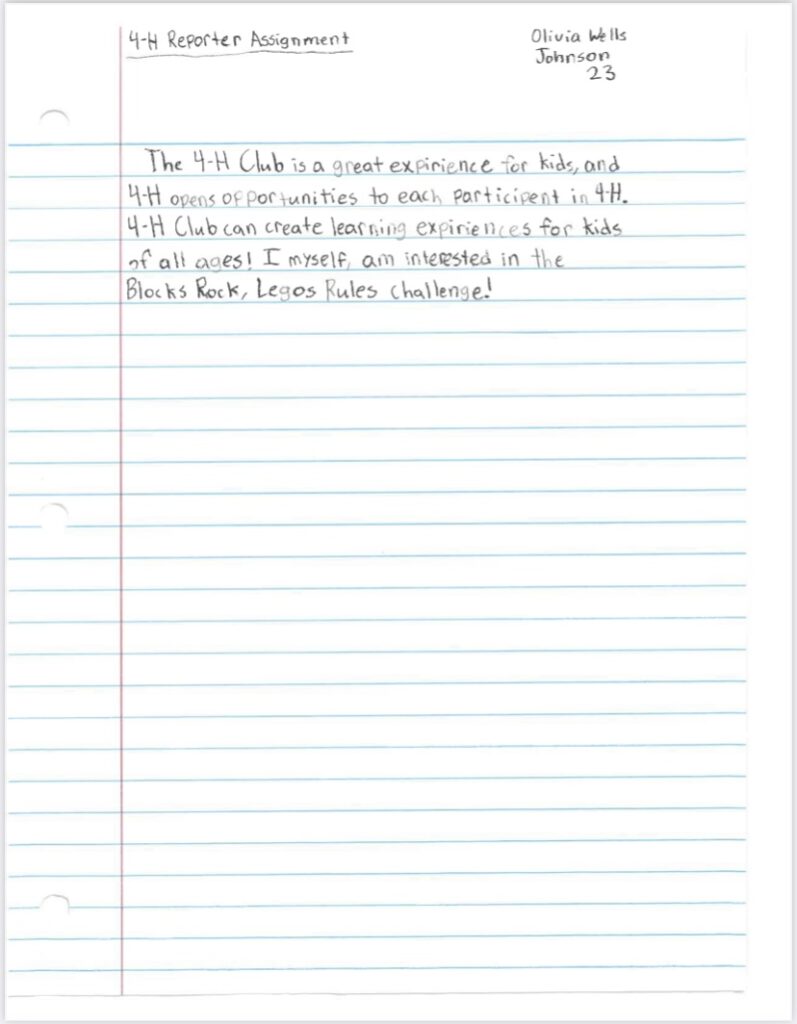 4-H Reporter Assignment
Olivia Wells
Johnson
23
The 4-H Club is a great expirience for kids, and
4-H opens opportunities to each participent in 4-H.
4-H Club can create learning expiriences for kids
of all ages! I myself, am interested in the
Blocks Rock, Legos Rules Challenge!